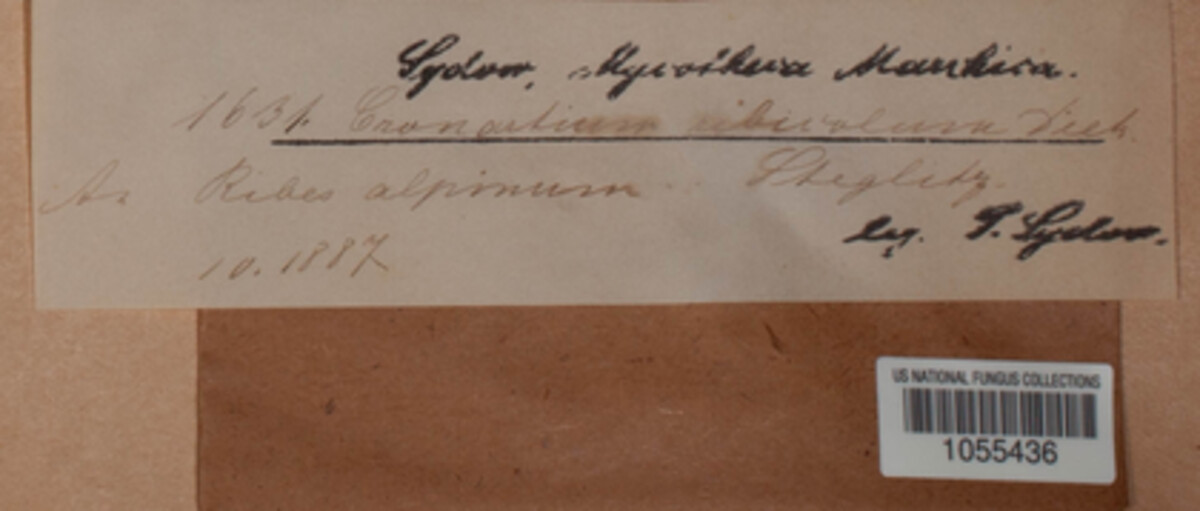 Sydow, Mycotheca Marchica.
1631. Cronartium ribicolum Diet.
An Ribes alpinum Steglitz.
leg. P. Sydow.
10. 1887
US NATIONAL FUNGUS COLLECTIONS
1055436